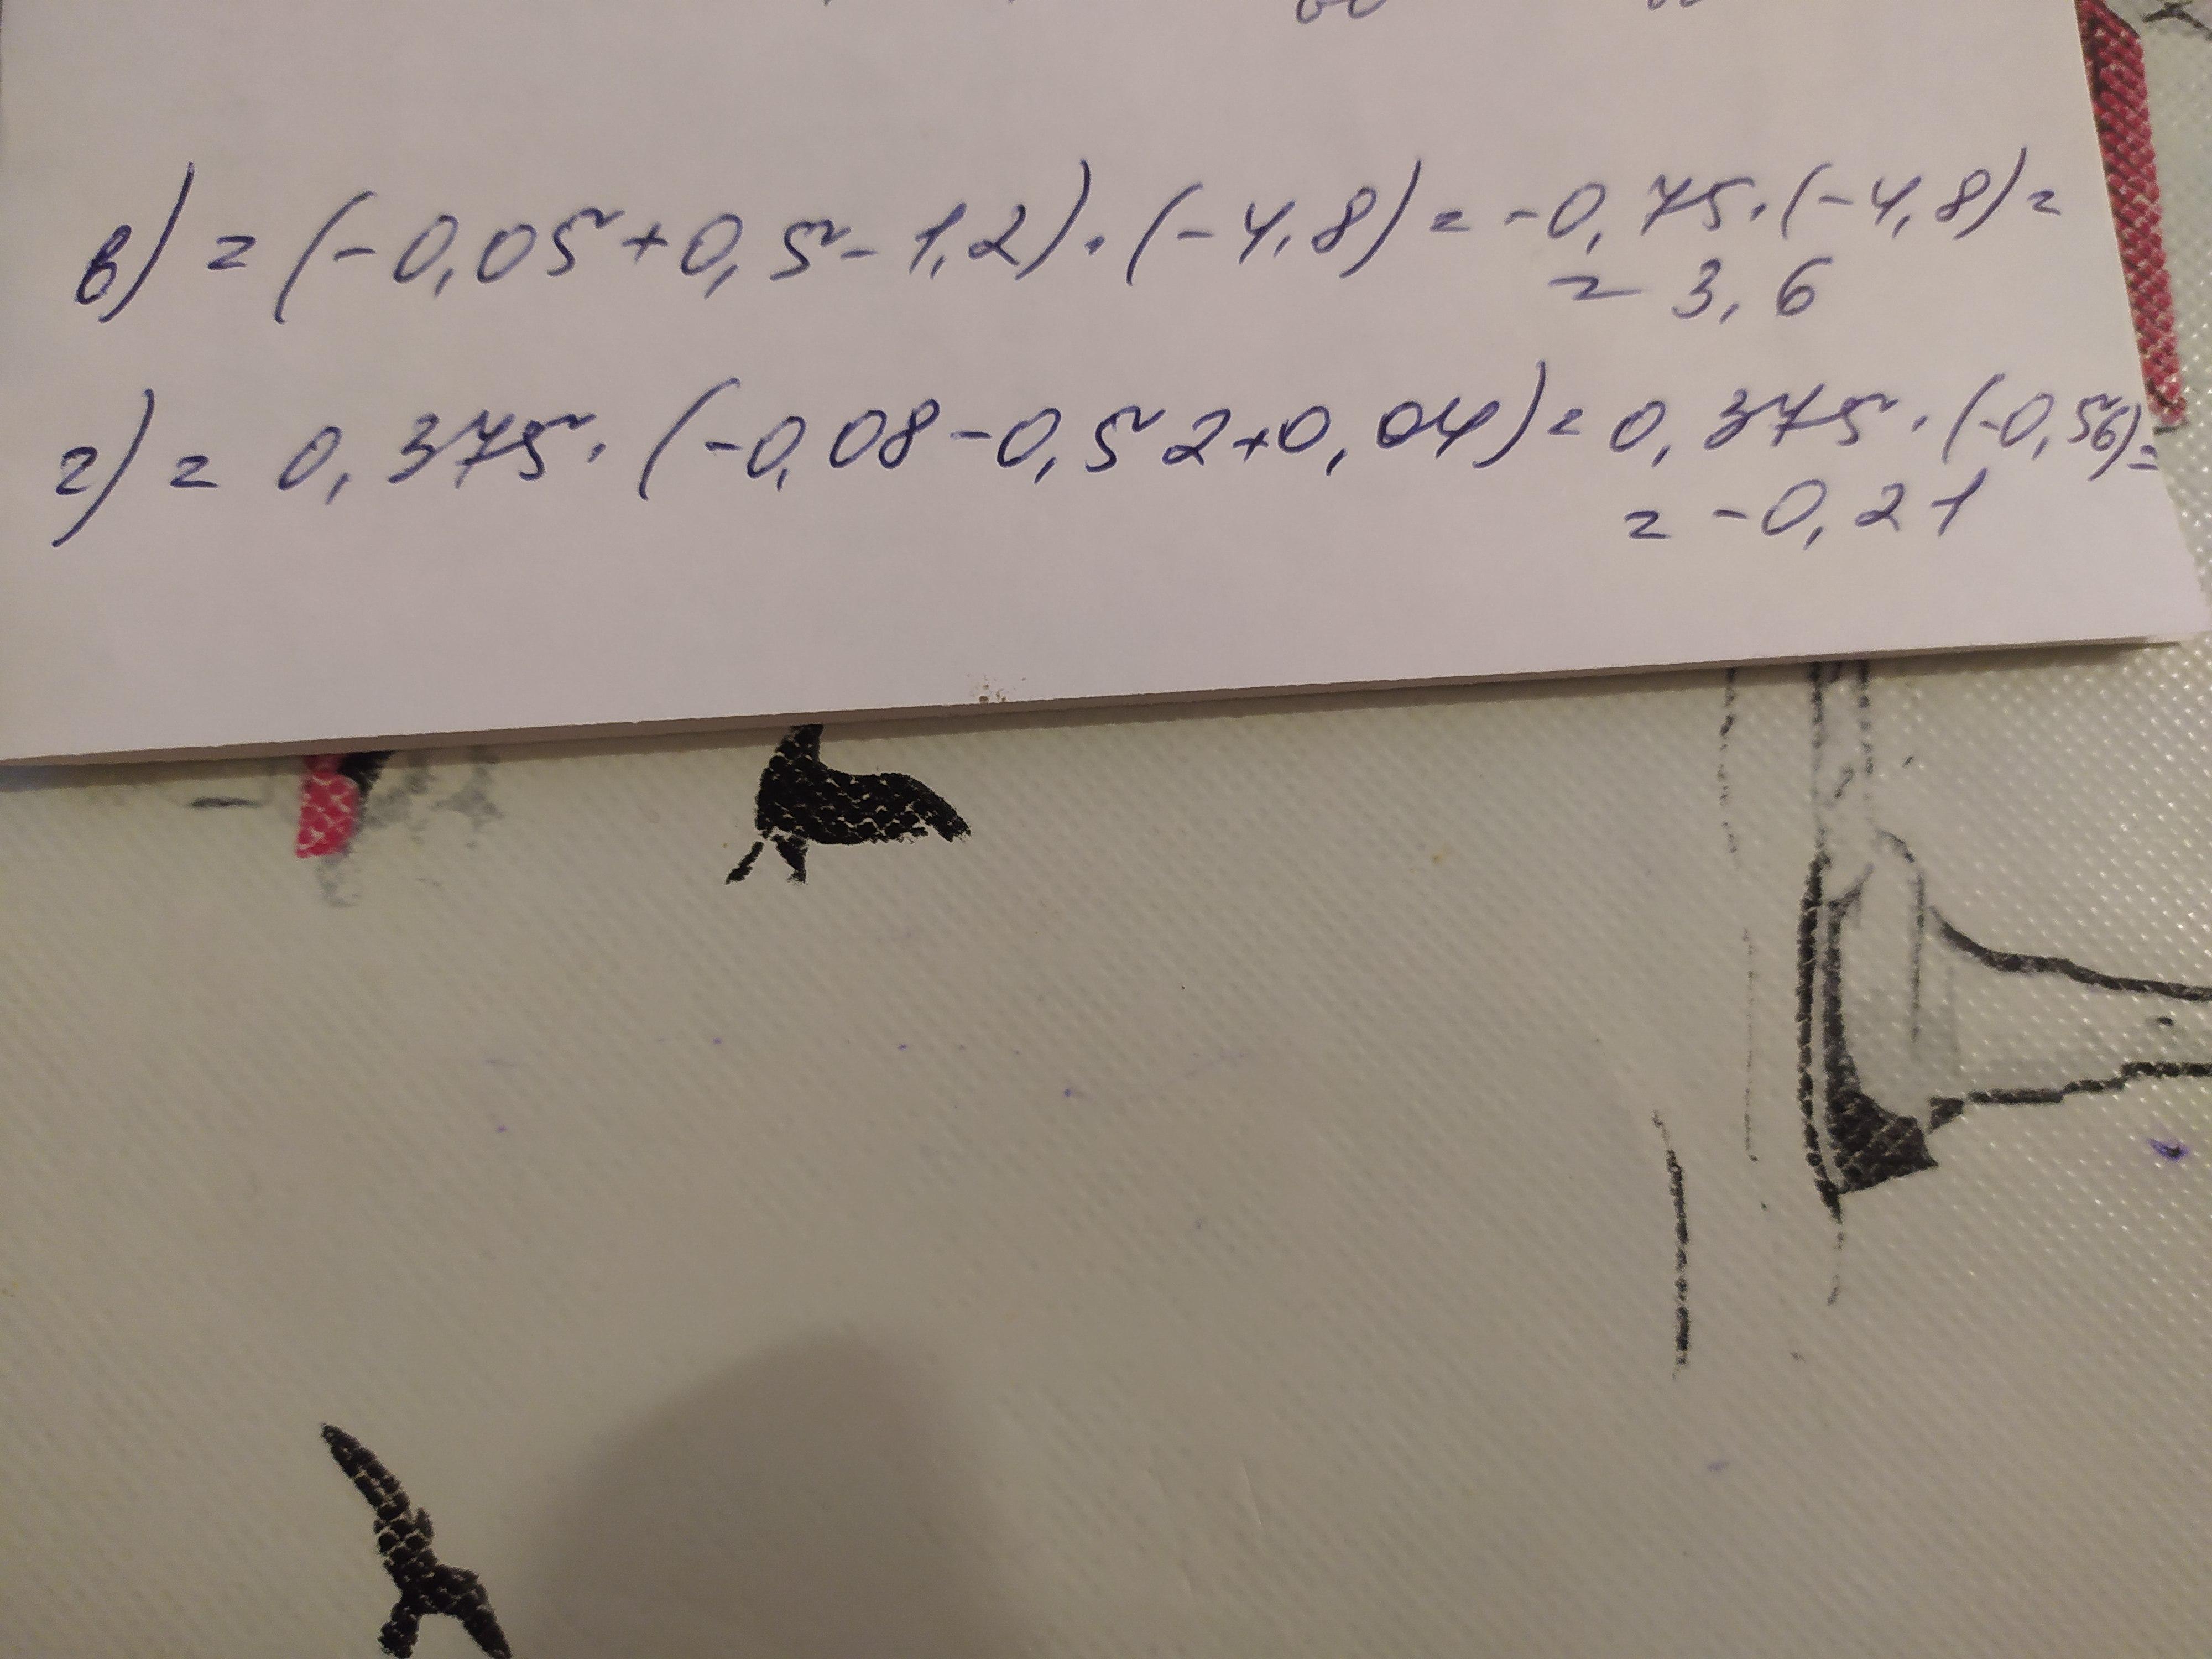 в) = (-0,05+0,5-1,2)·(-4,8) = -0,75·(-4,8) =
= 3,6
г) = 0,375·(-0,08-0,52+0,04) = 0,375·(-0,56) =
= -0,21